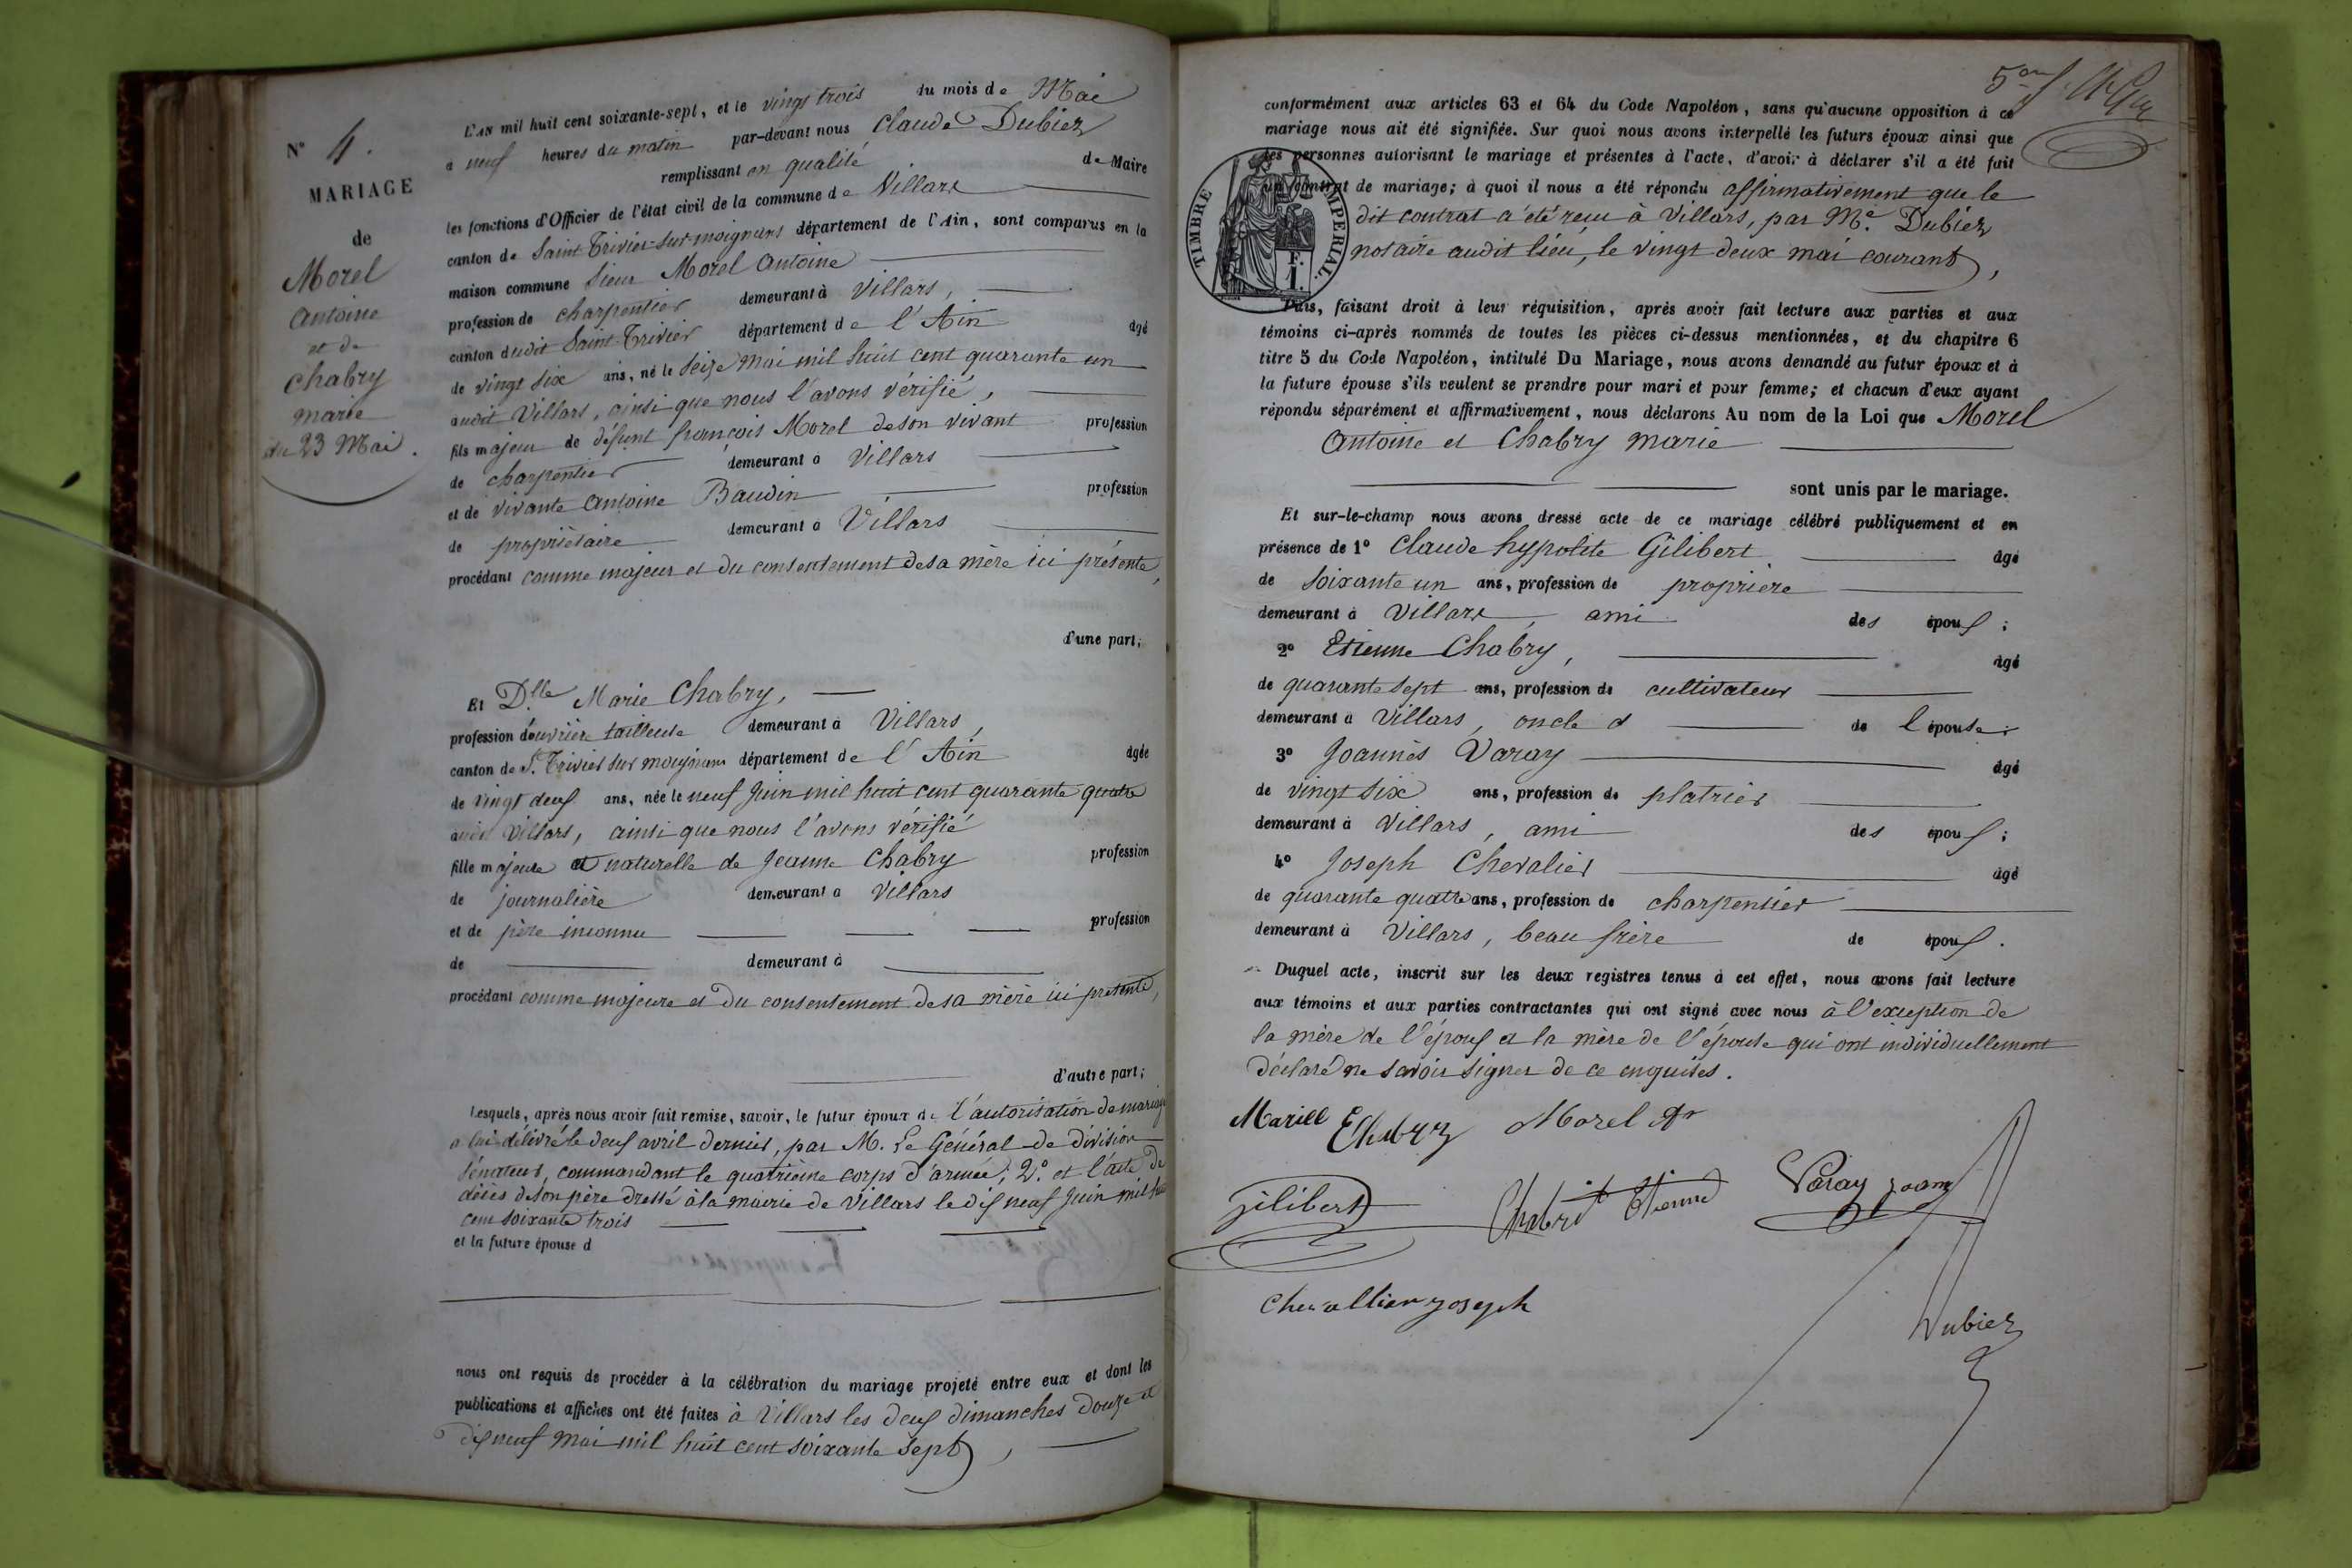 N° 4.
MARIAGE
de
Morel
Antoine
et de
Chabry
marie
du 23 Mai.
L'AN mil huit cent soixante-sept, et le vingt trois du mois de Mai
à neuf heures du matin par-devant nous Claude Dubiez
remplissant en qualité de Maire
les fonctions d'Officier de l'état civil de la commune de Villars
canton de Saint Trivier-sur-moignans département de l'Ain, sont comparus en la
maison commune Sieur Morel Antoine
profession de charpentier demeurant à Villars,
canton dudit Saint Trivier département de l'Ain âgé
de vingt six ans, né le seize mai mil huit cent quarante un
audit Villars, ainsi que nous l'avons vérifié,
fils majeur de défunt françois Morel de son vivant profession
de charpentier demeurant à Villars
et de vivante Antoine Baudin profession
de propriétaire demeurant à Villars
procédant comme majeur et du consentement de sa mère ici présente,
d'une part;
Et Dlle Marie Chabry,
profession d'ouvrière tailleuse demeurant à Villars,
canton de St. Trivier sur moignans département de l'Ain âgée
de vingt deux ans, née le neuf Juin mil huit cent quarante quatre
audit Villars, ainsi que nous l'avons vérifié
fille majeure et naturelle de Jeanne Chabry profession
de journalière demeurant à Villars
et de père inconnu profession
de demeurant à
procédant comme majeure et du consentement de sa mère ici présente,
d'autre part;
Lesquels, après nous avoir fait remise, savoir, le futur époux de l'autorisation de mariage
a lui délivré le deux avril dernier, par M. Le Général de division
Sénateur, commandant le quatrième corps d'armée; 2.° et l'acte de
décès de son père dressé à la mairie de Villars le dix neuf Juin mil huit
cent soixante trois
et la future épouse d
nous ont requis de procéder à la célébration du mariage projeté entre eux et dont les
publications et affiches ont été faites à Villars les deux dimanches douze et
dix neuf mai mil huit cent soixante sept,
conformément aux articles 63 et 64 du Code Napoléon, sans qu'aucune opposition à ce
mariage nous ait été signifiée. Sur quoi nous avons interpellé les futurs époux ainsi que
les personnes autorisant le mariage et présentes à l'acte, d'avoir à déclarer s'il a été fait
un contrat de mariage; à quoi il nous a été répondu affirmativement que le
dit contrat a été reçu à Villars, par Me. Dubiez
notaire audit lieu, le vingt deux mai courant,
TIMBRE IMPERIAL.
F.
1.
Puis, faisant droit à leur réquisition, après avoir fait lecture aux parties et aux
témoins ci-après nommés de toutes les pièces ci-dessus mentionnées, et du chapitre 6
titre 5 du Code Napoléon, intitulé Du Mariage, nous avons demandé au futur époux et à
la future épouse s'ils veulent se prendre pour mari et pour femme; et chacun d'eux ayant
répondu séparément et affirmativement, nous déclarons Au nom de la Loi que Morel
Antoine et Chabry marie
sont unis par le mariage.
Et sur-le-champ nous avons dressé acte de ce mariage célébré publiquement et en
présence de 1° Claude hypolite Gilibert âgé
de soixante un ans, profession de proprière
demeurant à Villars, ami des époux;
2° Etienne Chabry, âgé
de quarante sept ans, profession de cultivateur
demeurant à Villars, oncle d de l'épouse;
3° Joannès Varay âgé
de vingt six ans, profession de platrier
demeurant à Villars, ami des époux;
4° Joseph Chevalier âgé
de quarante quatre ans, profession de charpentier
demeurant à Villars, beau frère de époux.
Duquel acte, inscrit sur les deux registres tenus à cet effet, nous avons fait lecture
aux témoins et aux parties contractantes qui ont signé avec nous à l'exception de
la mère de l'époux et la mère de l'épouse qui ont individuellement
déclaré ne savoir signer de ce enquises.
Morel
Gilibert Chabrit Etienne Varay Joan
Chevallier Joseph
Dubiez